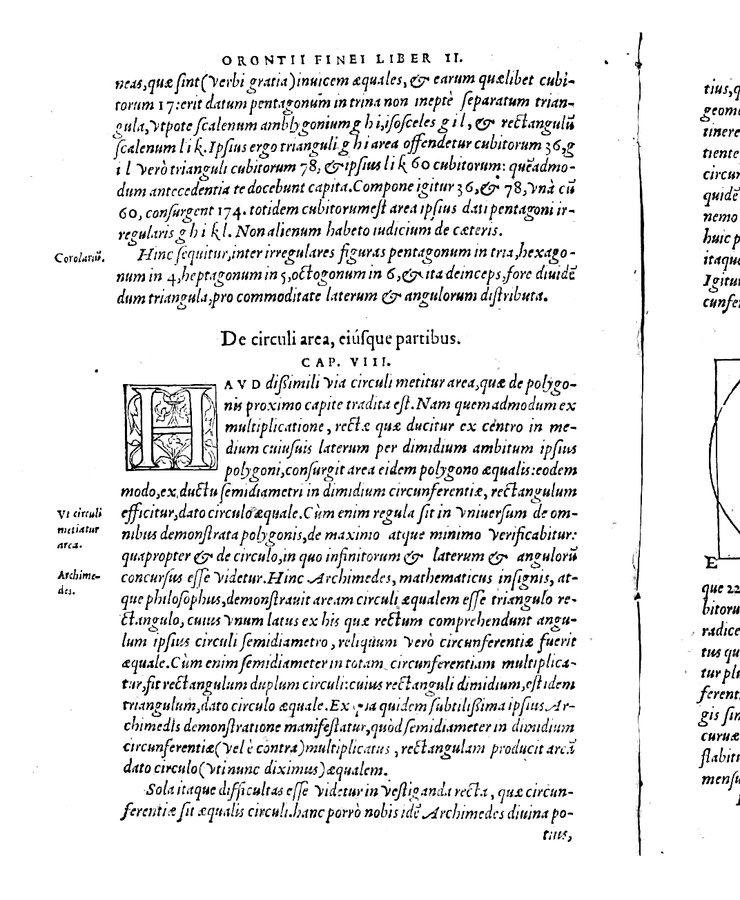 ORONTII FINEI LIBER II.
neas, quæ sint (verbi gratia) inuicem æquales, & earum quælibet cubi-
torum 17: erit datum pentagonum in trina non ineptè separatum trian-
gula, vtpote scalenum amblygonium g h i, isosceles g i l, & rectangulū
scalenum l i k. Ipsius ergo trianguli g h i area offendetur cubitorum 36, g
i l verò trianguli cubitorum 78, & ipsius l i k 60 cubitorum: quēadmo-
dum antecedentia te docebunt capita. Compone igitur 36, & 78, vnà cū
60, consurgent 174. totidem cubitorum est area ipsius dati pentagoni ir-
regularis g h i k l. Non alienum habeto iudicium de cæteris.
Corolariū.
Hinc sequitur, inter irregulares figuras pentagonum in tria, hexago-
num in 4, heptagonum in 5, octogonum in 6, & ita deinceps, fore diuidē
dum triangula, pro commoditate laterum & angulorum distributa.
De circuli area, eiúsque partibus.
CAP. VIII.
HAVD dißimili via circuli metitur area, quæ de polygo-
nis proximo capite tradita est. Nam quemadmodum ex
multiplicatione, rectæ quæ ducitur ex centro in me-
dium cuiusuis laterum per dimidium ambitum ipsius
polygoni, consurgit area eidem polygono æqualis: eodem
modo, ex ductu semidiametri in dimidium circunferentiæ, rectangulum
Vt circuli
metiatur
area.
efficitur, dato circulo æquale. Cùm enim regula sit in vniuersum de om-
nibus demonstrata polygonis, de maximo atque minimo verificabitur:
quapropter & de circulo, in quo infinitorum & laterum & angulorū
Archime-
des.
concursus esse videtur. Hinc Archimedes, mathematicus insignis, at-
que philosophus, demonstrauit aream circuli æqualem esse triangulo re-
ctangulo, cuius vnum latus ex his quæ rectum comprehendunt angu-
lum ipsius circuli semidiametro, reliquum verò circunferentiæ fuerit
æquale. Cùm enim semidiameter in totam circunferentiam multiplica-
tur, fit rectangulum duplum circuli: cuius rectanguli dimidium, est idem
triangulum, dato circulo æquale. Ex quidem subtilißima ipsius Ar-
chimedis demonstratione manifestatur, quòd semidiameter in dimidium
circunferentiæ (vel è contra) multiplicatus, rectangulam producit areā
dato circulo (vti nunc diximus) æqualem.
Sola itaque difficultas esse videtur in vestiganda recta, quæ circun-
ferentiæ sit æqualis circuli. hanc porrò nobis idē Archimedes diuina po-
tius,
tius, q
geome
tinere
tiente
circun
quidē
nemo
huic p
itaqu
Igitur
cunfe
E
que 22
bitoru
radice
tus qu
tur plu
ferent
gis sin
curuæ
stabiti
mensu